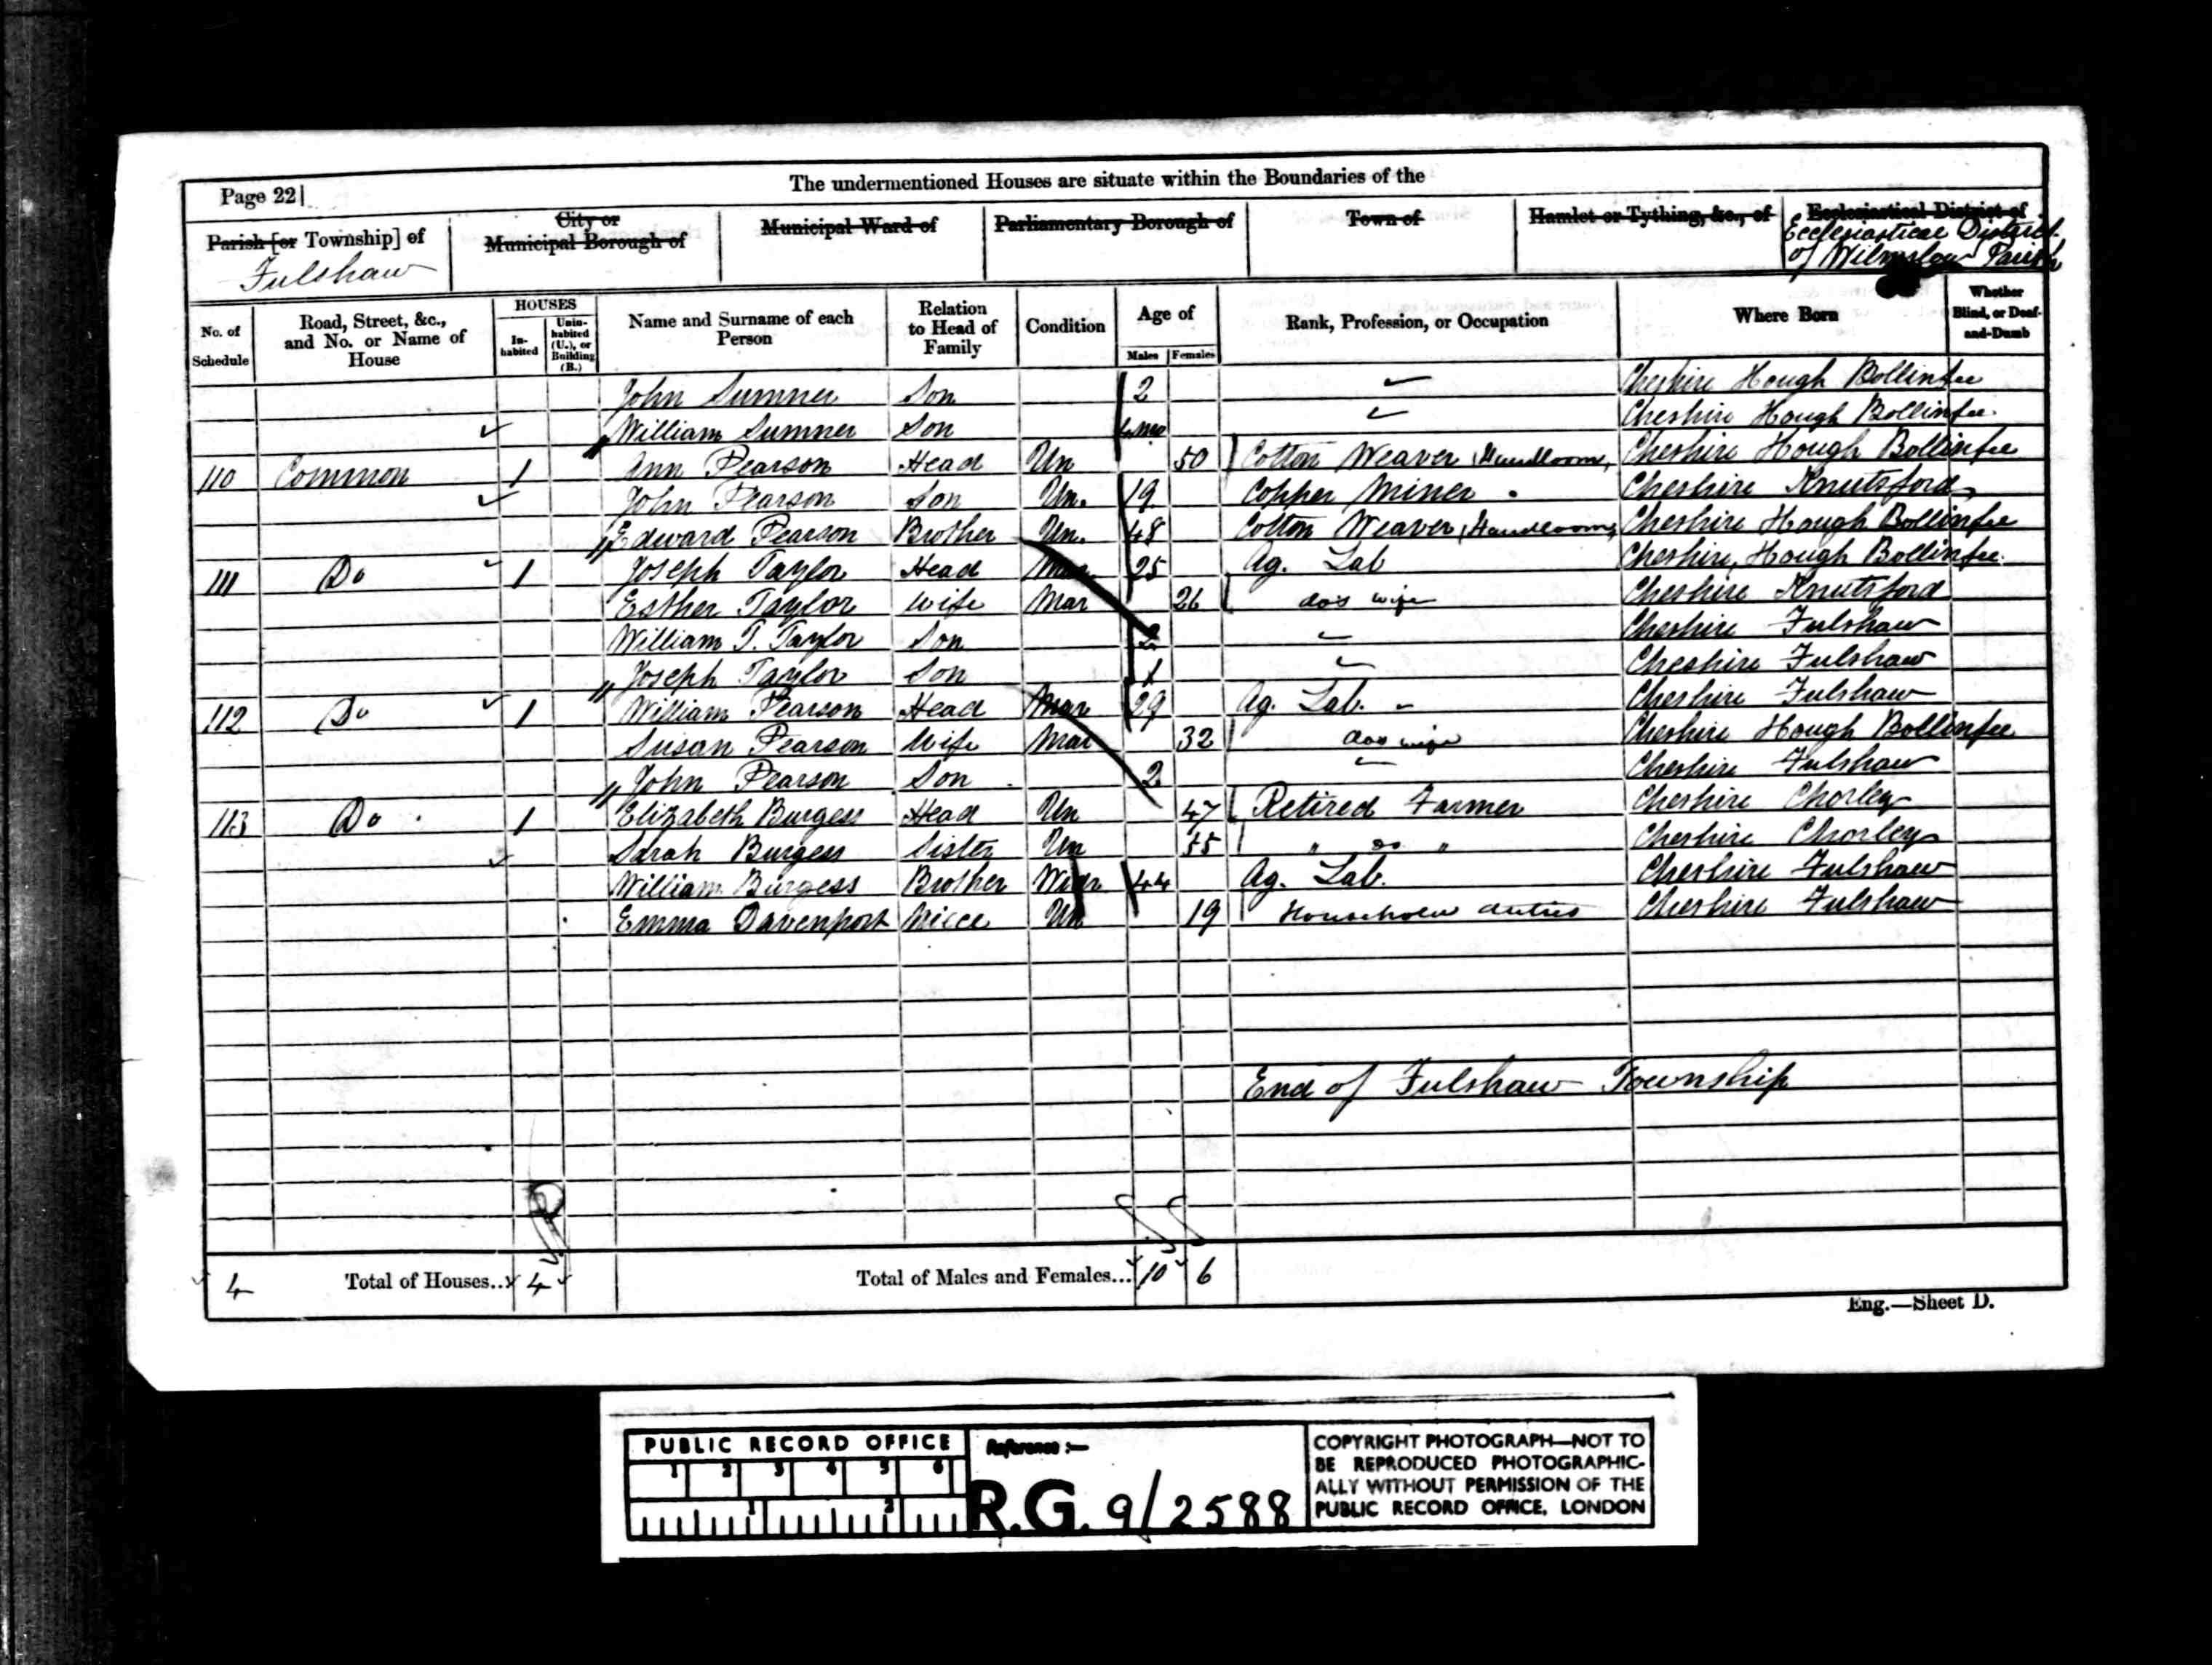 Page 22
The undermentioned Houses are situate within the Boundaries of the
Parish [or Township] of
Fulshaw
City or
Municipal Borough of
Municipal Ward of
Parliamentary Borough of
Town of
Hamlet or Tything, &c., of
Ecclesiastical District of
Ecclesiastical District
of Wilmslow Parish
No. of Schedule
Road, Street, &c., and No. or Name of House
HOUSES
Inhabited
Uninhabited (U.), or Building (B.)
Name and Surname of each Person
Relation to Head of Family
Condition
Age of
Males
Females
Rank, Profession, or Occupation
Where Born
Whether Blind, or Deaf-and-Dumb
John Sumner Son 2 Cheshire Hough Bollinfee
William Sumner Son 4 mo Cheshire Hough Bollinfee
110 Common 1 Ann Pearson Head Un 50 Cotton Weaver Handloom, Cheshire Hough Bollinfee
John Pearson Son Un. 19 Copper Miner Cheshire Knutsford
Edward Pearson Brother Un. 48 Cotton Weaver Handloom, Cheshire Hough Bollinfee
111 Do 1 Joseph Taylor Head Mar. 25 Ag. Lab Cheshire, Hough Bollinfee.
Esther Taylor Wife Mar 26 do's wife Cheshire Knutsford
William T. Taylor Son 2 Cheshire Fulshaw
Joseph Taylor Son 1 Cheshire Fulshaw
112 Do 1 William Pearson Head Mar 29 Ag. Lab. Cheshire Fulshaw
Susan Pearson Wife Mar 32 do's wife Cheshire Hough Bollinfee
John Pearson Son 2 Cheshire Fulshaw
113 Do 1 Elizabeth Burgess Head Un 47 Retired Farmer Cheshire Chorley
Sarah Burgess Sister Un 55 " do " Cheshire Chorley
William Burgess Brother Widr 44 Ag. Lab. Cheshire Fulshaw
Emma Davenport Niece Un 19 Household duties Cheshire Fulshaw
End of Fulshaw Township
4 Total of Houses... 4 Total of Males and Females... 10 6
Eng.—Sheet D.
PUBLIC RECORD OFFICE
1 2 3 4 5 6
1 2
Reference :—
R.G. 9/2588
COPYRIGHT PHOTOGRAPH—NOT TO
BE REPRODUCED PHOTOGRAPHIC-
ALLY WITHOUT PERMISSION OF THE
PUBLIC RECORD OFFICE, LONDON